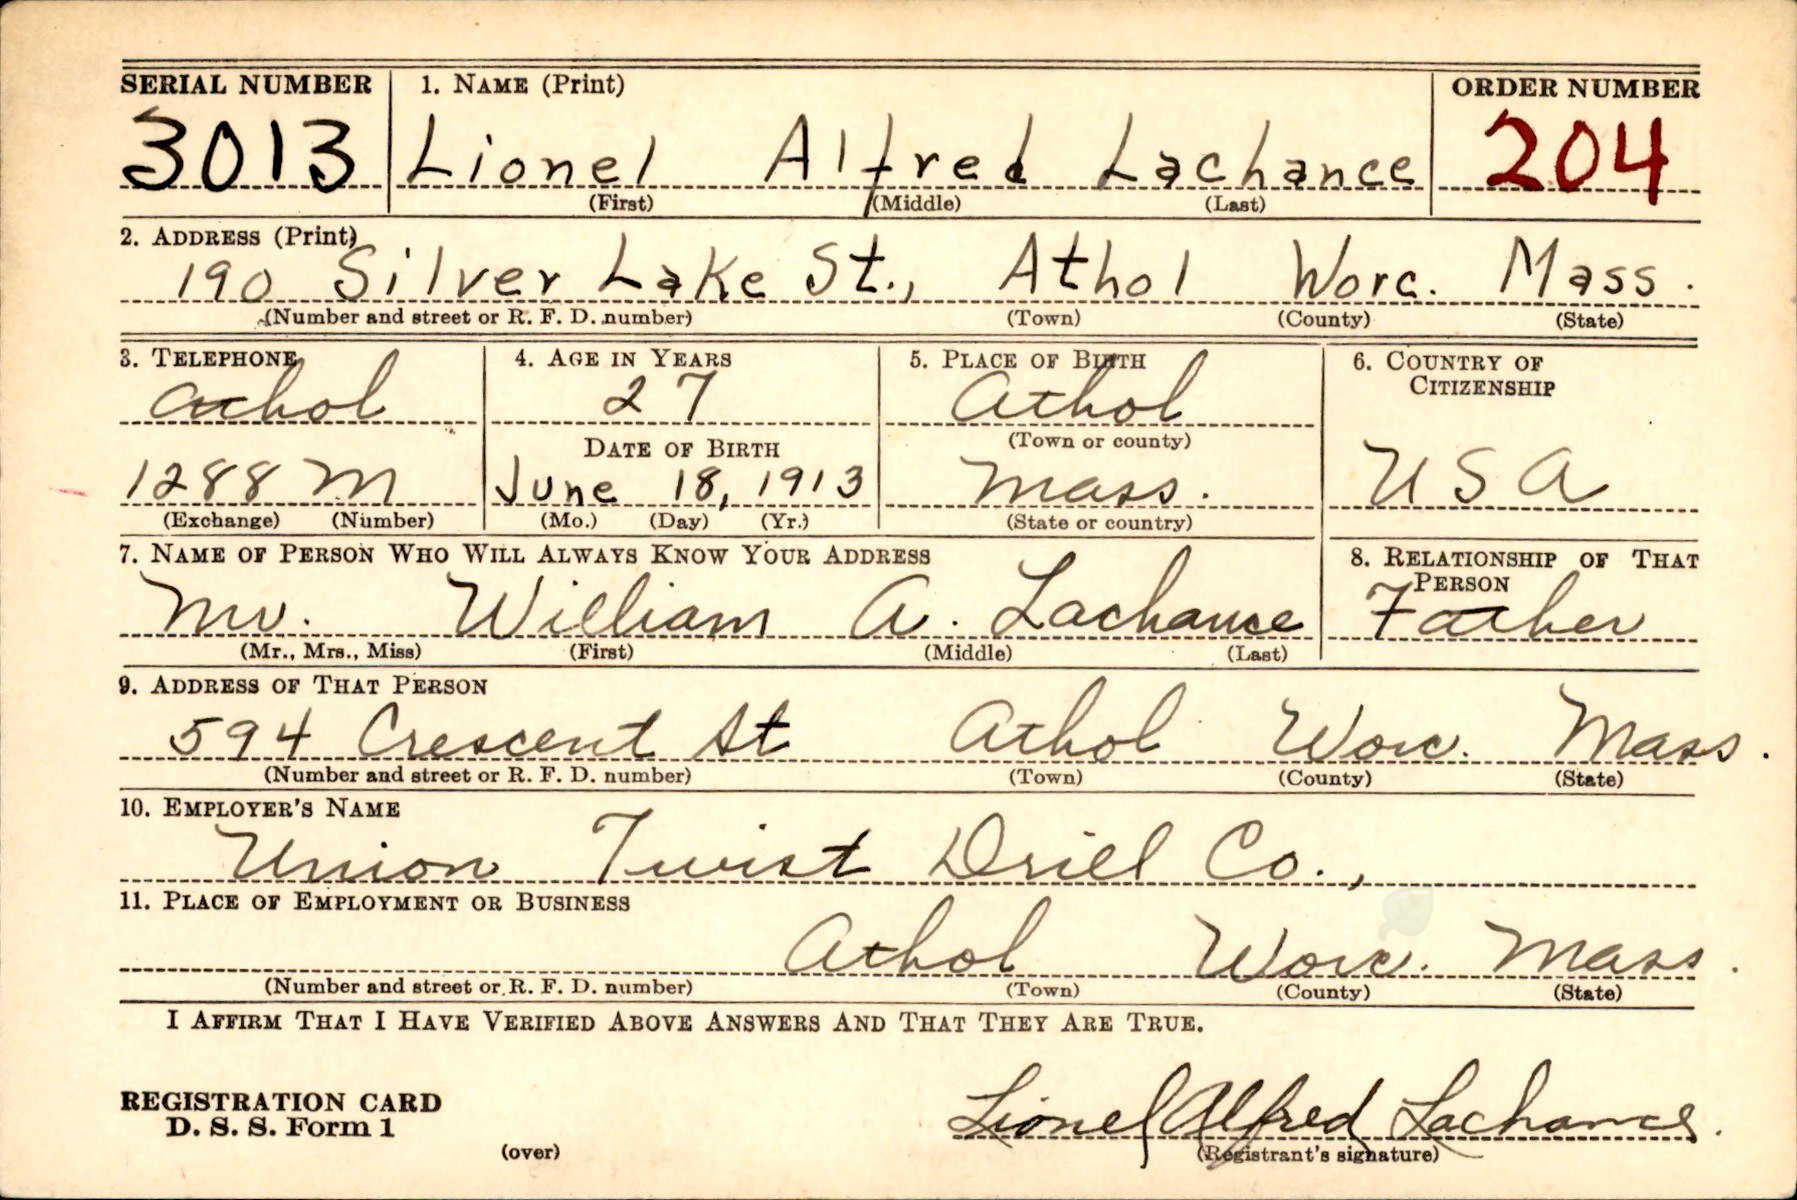 SERIAL NUMBER 1. NAME (Print) ORDER NUMBER
3013 Lionel Alfred Lachance 204
(First) (Middle) (Last)
2. ADDRESS (Print)
190 Silver Lake St., Athol Worc. Mass.
(Number and street or R. F. D. number) (Town) (County) (State)
3. TELEPHONE 4. AGE IN YEARS 5. PLACE OF BIRTH 6. COUNTRY OF
CITIZENSHIP
Athol 27 Athol
DATE OF BIRTH (Town or county)
1288 M June 18, 1913 Mass. USA
(Exchange) (Number) (Mo.) (Day) (Yr.) (State or country)
7. NAME OF PERSON WHO WILL ALWAYS KNOW YOUR ADDRESS 8. RELATIONSHIP OF THAT
PERSON
Mr. William A. Lachance Father
(Mr., Mrs., Miss) (First) (Middle) (Last)
9. ADDRESS OF THAT PERSON
594 Crescent St Athol Worc. Mass.
(Number and street or R. F. D. number) (Town) (County) (State)
10. EMPLOYER'S NAME
Union Twist Drill Co.,
11. PLACE OF EMPLOYMENT OR BUSINESS
Athol Worc. Mass.
(Number and street or R. F. D. number) (Town) (County) (State)
I AFFIRM THAT I HAVE VERIFIED ABOVE ANSWERS AND THAT THEY ARE TRUE.
REGISTRATION CARD
D. S. S. Form 1 Lionel Alfred Lachance.
(over) (Registrant's signature)